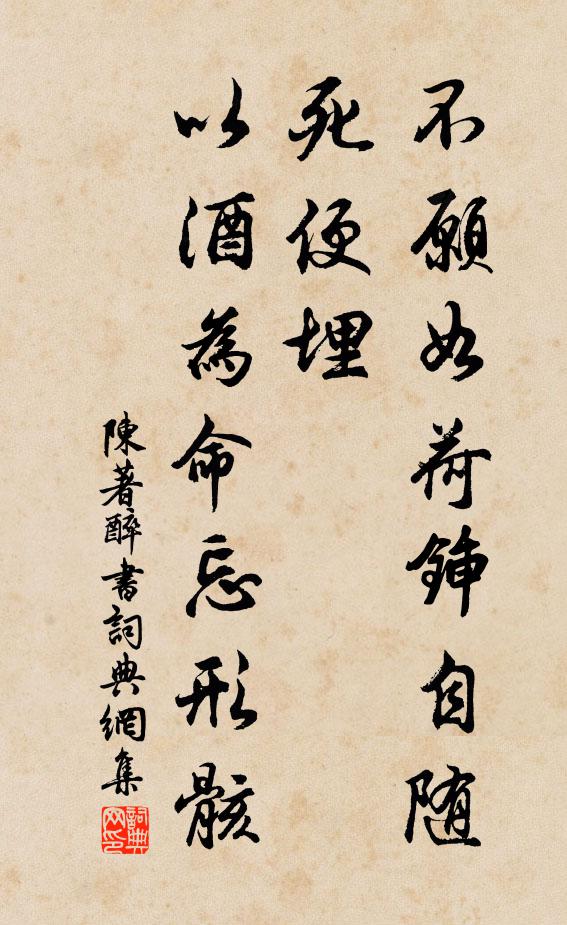 不願如荷鍤自随
死便埋
以酒為命忘形骸
陳著醉書詞典網集
詞典网印